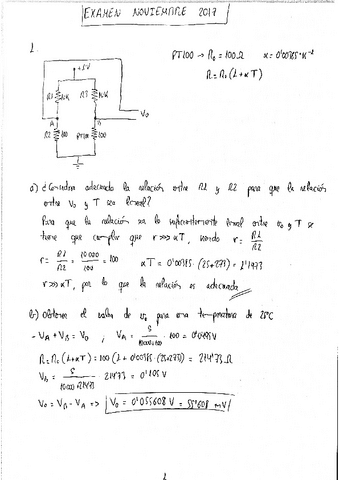 EXAMEN NOVIEMBRE 2017
1.
PT100 → R₀ = 100Ω α = 0'00385 ºK⁻¹
R = R₀ (1 + αT)
+5V
R1 10K R3 10K
V₀
A B
R2 100 PT100 100
a) ¿Considera adecuada la relación entre R1 y R2 para que la relación
entre V₀ y T sea lineal?
Para que la relación sea lo suficientemente lineal entre V₀ y T se
tiene que cumplir que r >>> αT, siendo r = R1/R2
r = R1/R2 = 10.000/100 = 100 αT = 0'00385 · (25+273) = 1'1473
r >>> αT, por lo que la relación es adecuada
b) Obtener el valor de V₀ para una temperatura de 25ºC
- VA + VB = V₀ , VA = 5/(10000+100) · 100 = 0'0495V
R = R₀ (1+αT) = 100 (1 + 0'00385 · (25+273)) = 214'73 Ω
VB = 5/(10000+214'73) · 214'73 = 0'105 V
V₀ = VB - VA => V₀ = 0'055608 V = 55'608 mV
1